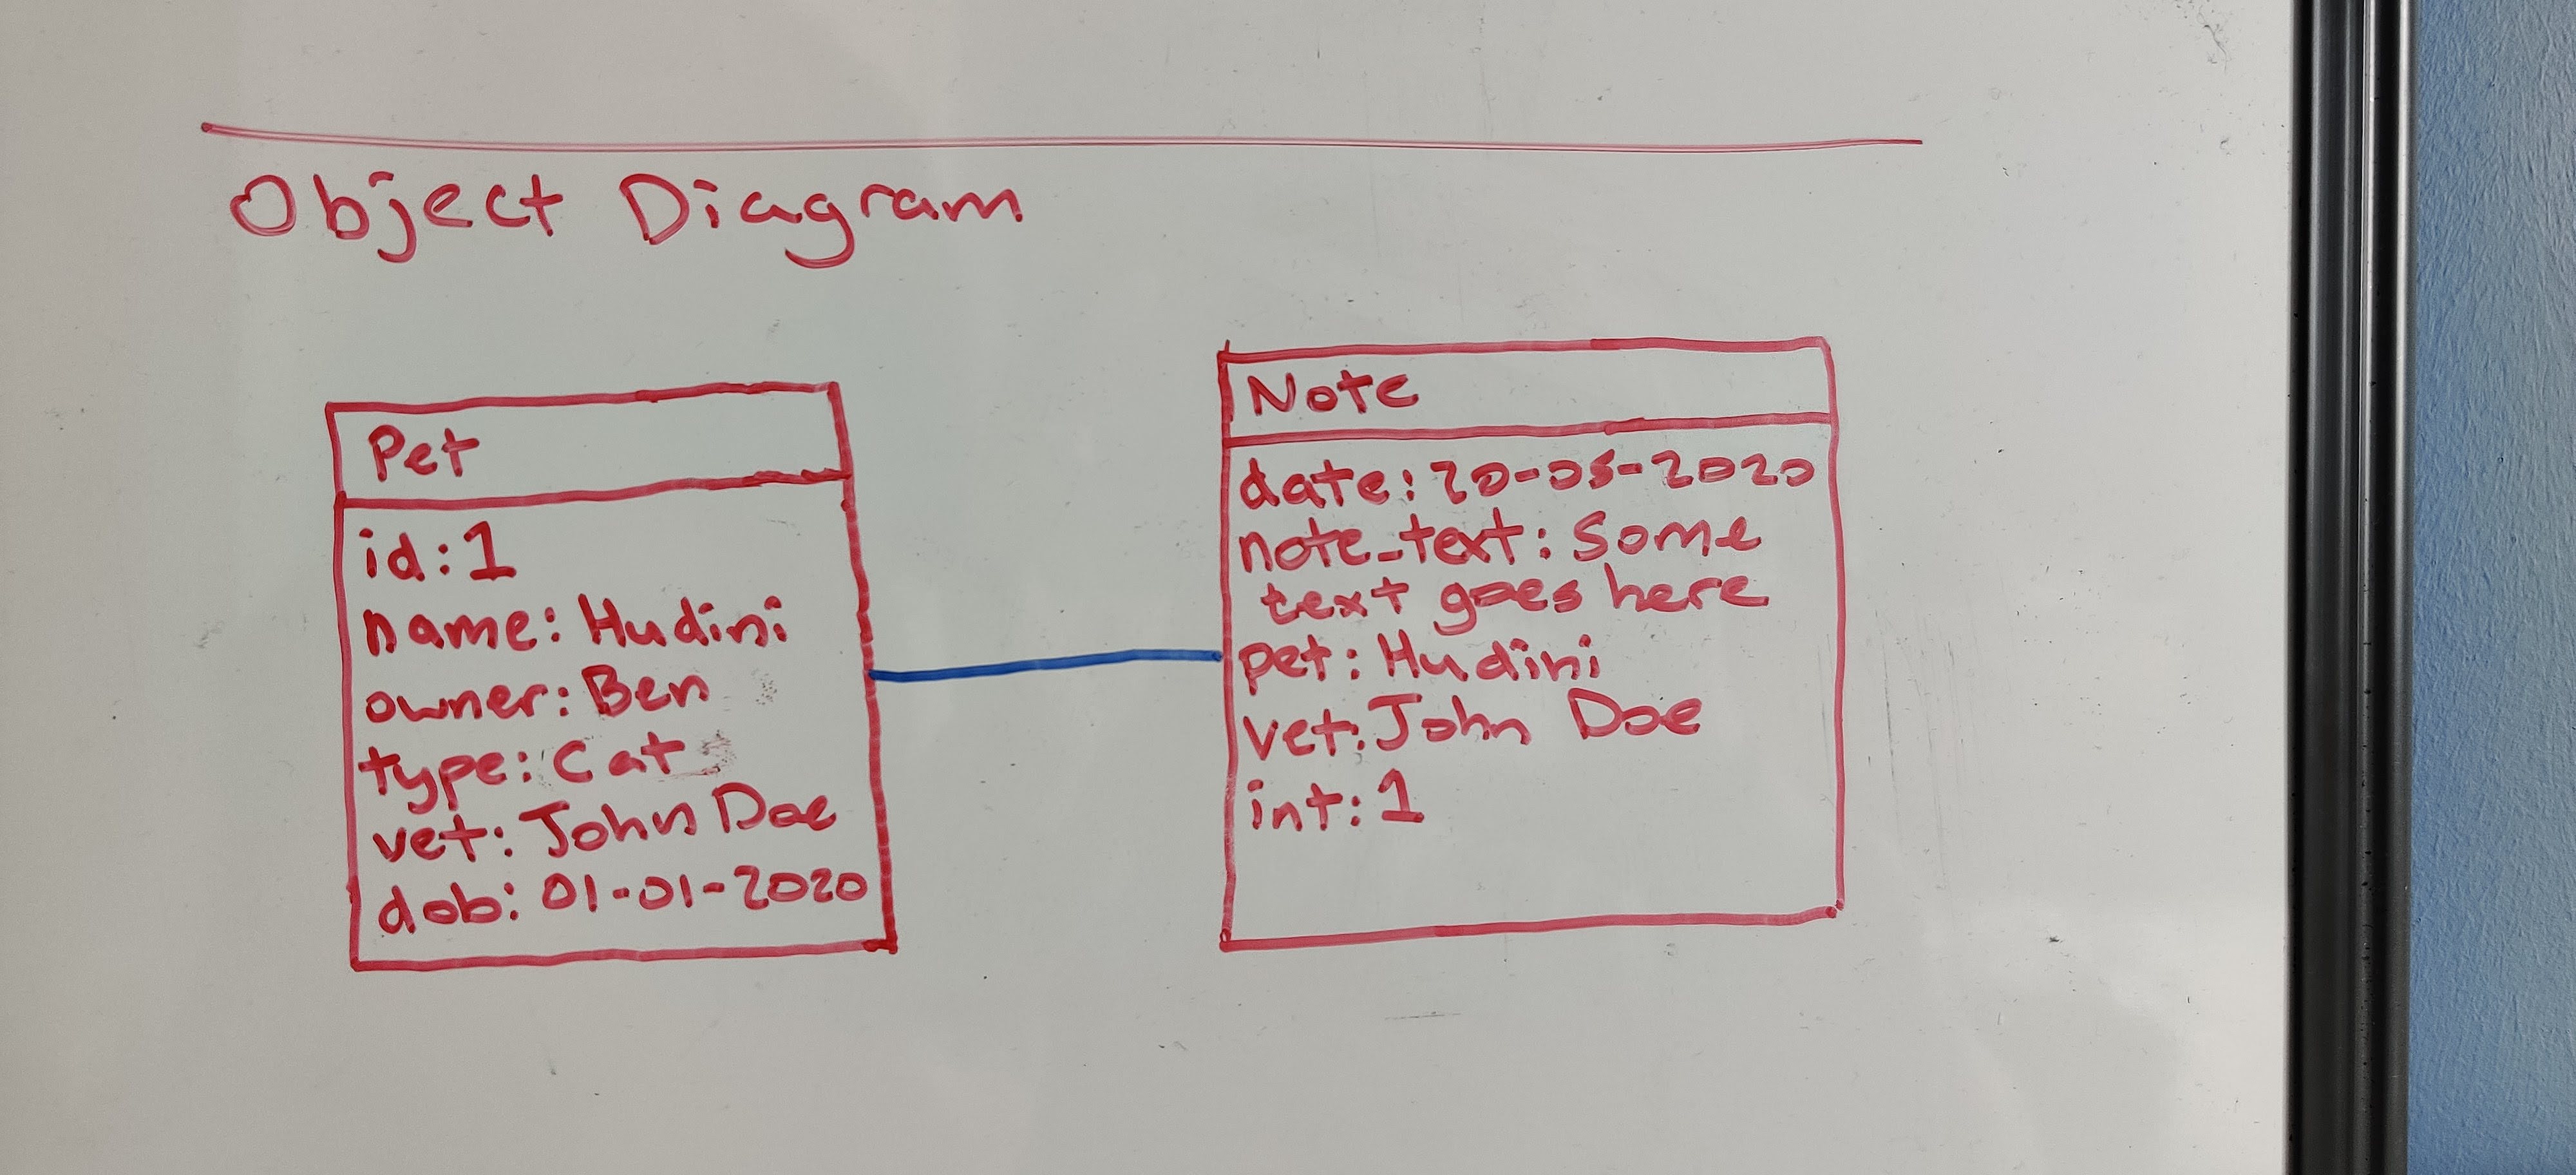 Object Diagram
Pet
id: 1
name: Hudini
owner: Ben
type: Cat
vet: John Doe
dob: 01-01-2020
Note
date: 20-05-2020
note_text: Some
text goes here
pet: Hudini
vet: John Doe
int: 1